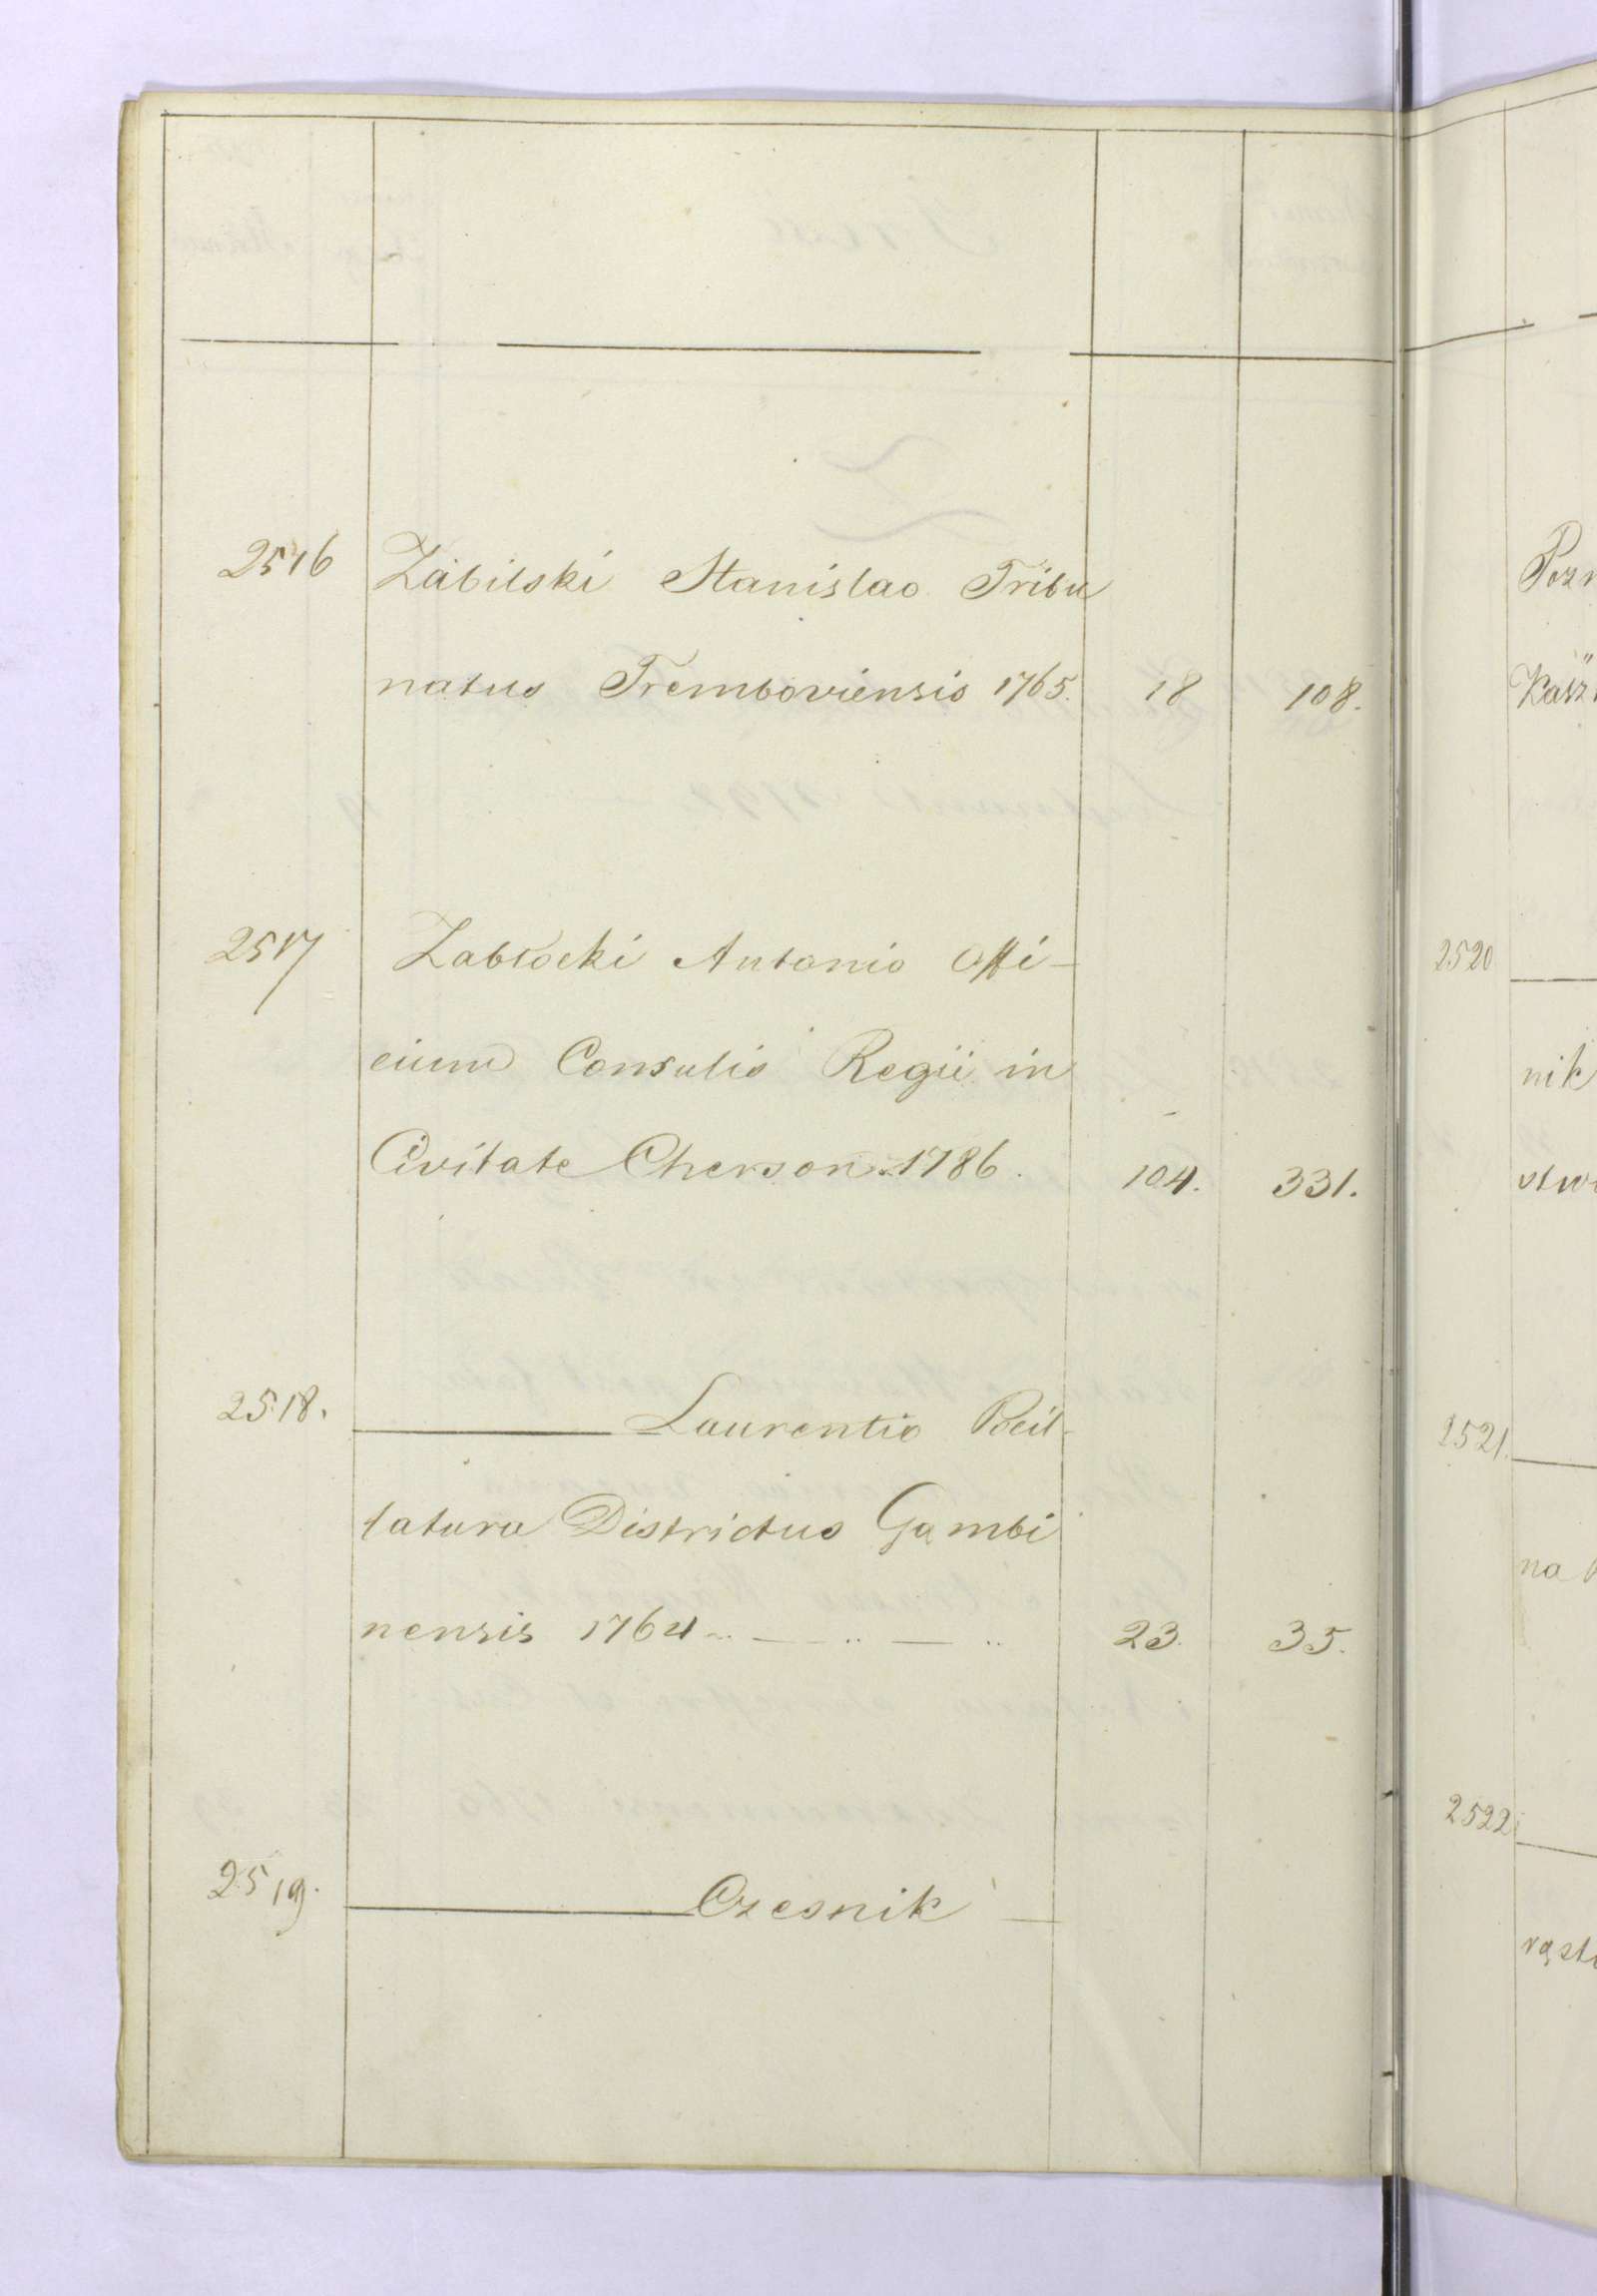 2516 Zabilski Stanislao Tribu
natus Tremboviensis 1765. 18 108.
2517 Zabłocki Antonio Offi-
cium Consulis Regii in
Civitate Cherson 1786. 104. 331.
2518. ——— Laurentio Pocil-
latura Districtus Gąmbi
nensis 1764 23. 35.
2519. ——— Czesnik —
Pozn
Kasz
2520
nik
stwo
2521.
na
2522
rąst